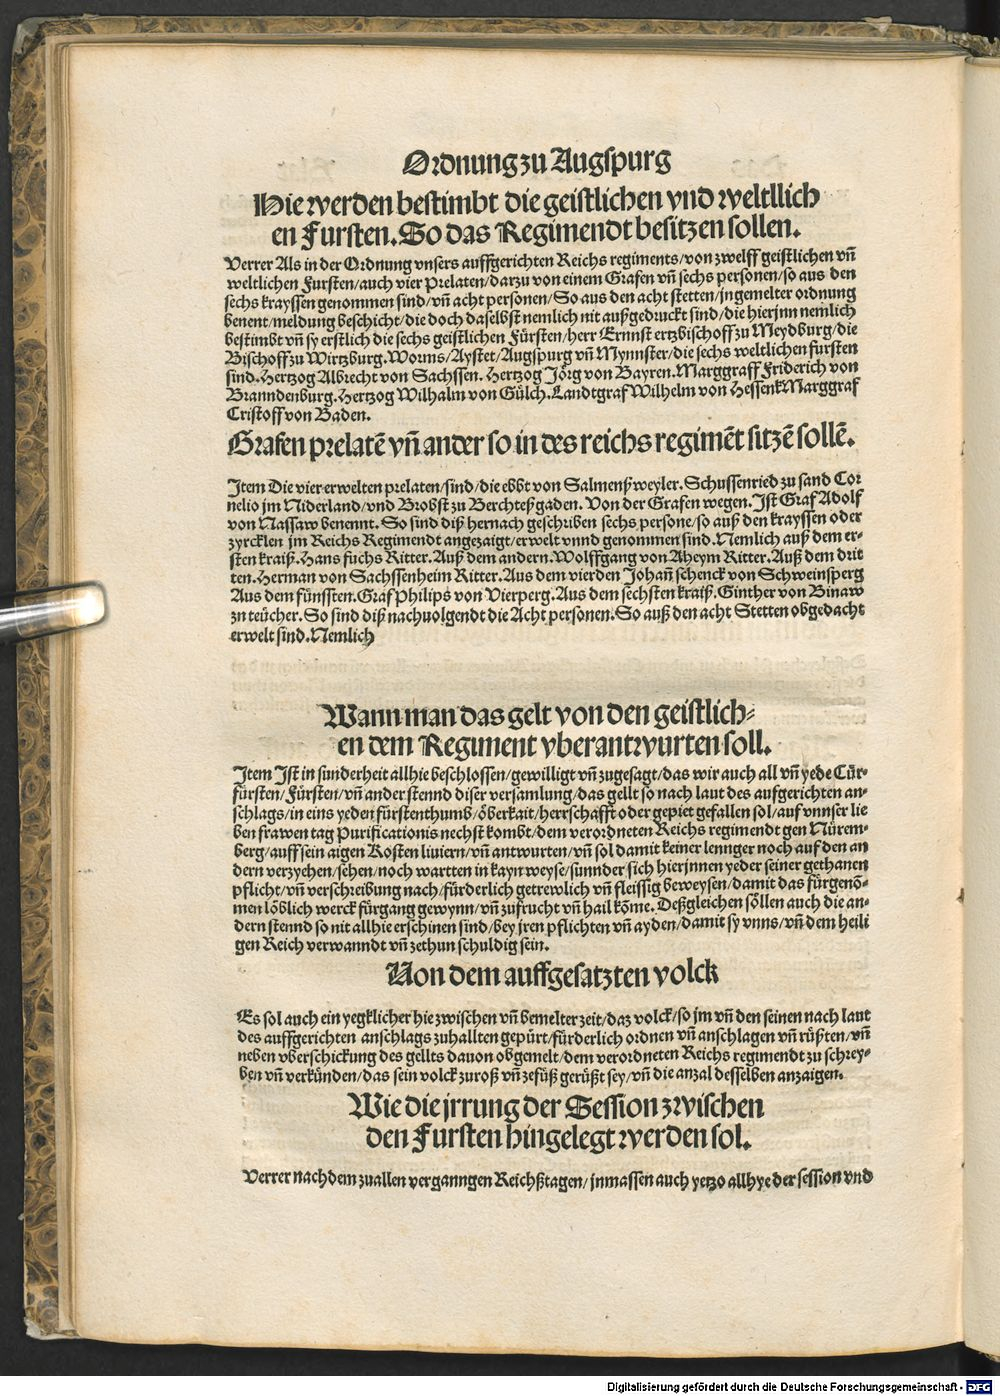 Ordnung zu Augspurg
Hie werden bestimbt die geistlichen vnd weltllich
en Fursten. So das Regimendt besitzen sollen.
Verrer Als in der Ordnung vnsers auffgerichten Reichs regiments/von zwelff geistlichen vn̄
weltlichen Fursten/auch vier Prelaten/darzu von einem Grafen vn̄ sechs personen/so aus den
sechs krayssen genommen sind/vn̄ acht personen/So aus den acht stetten/jn gemelter ordnung
benent/meldung beschicht/die doch daselbst nemlich nit außgedruckt sind/die hierjnn nemlich
bestimbt vn̄ sy erstlich die sechs geistlichen Fürsten/herr Ernnst ertzbischoff zu Meydburg/die
Bischoff zu Wirtzburg. Worms/Aystet/Augspurg vn̄ Mynnster/die sechs weltlichen fursten
sind. Hertzog Albrecht von Sachssen. Hertzog Jörg von Bayren. Marggraff Friderich von
Branndenburg. Hertzog Wilhalm von Gülch. Landtgraf Wilhelm von Hessenk Marggraf
Cristoff von Baden.
Grafen prelatē vn̄ ander so in des reichs regimēt sitzē sollē.
Item Die vier erwelten prelaten/sind/die ebbt von Salmenßweyler. Schussenried zu sand Cor
nelio jm Niderland/vnd Brobst zu Berchteßgaden. Von der Grafen wegen. Ist Graf Adolf
von Nassaw benennt. So sind diß hernach geschriben sechs persone/so auß den krayssen oder
zyrcklen jm Reichs Regimendt angezaigt/erwelt vnnd genommen sind. Nemlich auß dem er-
sten kraiß. Hans fuchs Ritter. Auß dem andern. Wolffgang von Aheyn Ritter. Auß dem drit
ten. Herman von Sachssenheim Ritter. Aus dem vierden Johan̄ schenck von Schweinsperg
Aus dem fünfften. Graf Philips von Vierperg. Aus dem sechsten kraiß. Ginther von Binaw
zu teücher. So sind diß nachuolgendt die Acht personen. So auß den acht Stetten obgedacht
erwelt sind. Nemlich
Wann man das gelt von den geistlich-
en dem Regiment vberantwurten soll.
Item Ist in sunderheit allhie beschlossen/gewilligt vn̄ zugesagt/das wir auch all vn̄ yede Cür-
fürsten/Fürsten/vn̄ ander stennd diser versamlung/das gellt so nach laut des aufgerichten an-
schlags/in eins yeden fürstenthumb/öberkait/herrschafft oder gepiet gefallen sol/auf vnnser lie
ben frawen tag Purificationis nechst kombt/dem verordneten Reichs regimendt gen Nürem-
berg/auff sein aigen Kosten liuiern/vn̄ antwurten/vn̄ sol damit keiner lennger noch auf den an
dern verzyehen/sehen/noch wartten in kayn weyse/sunnder sich hierjnnen yeder seiner gethanen
pflicht/vn̄ verschreibung nach/fürderlich getrewlich vn̄ fleissig beweysen/damit das fürgenō-
men löblich werck fürgang gewynn/vn̄ zu frucht vn̄ hail kōme. Deßgleichen söllen auch die an-
dern stennd so nit allhie erschinen sind/bey jren pflichten vn̄ ayden/damit sy vnns/vn̄ dem heili
gen Reich verwanndt vn̄ zethun schuldig sein.
Von dem auffgesatzten volck
Es sol auch ein yegklicher hie zwischen vn̄ bemelter zeit/daz volck/so jm vn̄ den seinen nach laut
des auffgerichten anschlags zuhallten gepürt/fürderlich ordnen vn̄ anschlagen vn̄ rüßten/vn̄
neben vberschickung des gellts dauon obgemelt/dem verordneten Reichs regimendt zu schrey-
ben vn̄ verkünden/das sein volck zuroß vn̄ zefüß gerüßt sey/vn̄ die anzal desselben anzaigen.
Wie die jrrung der Session zwischen
den Fursten hingelegt werden sol.
Verrer nachdem zuallen verganngen Reichßtagen/jnmassen auch yetzo allhye der session vnd
Digitalisierung gefördert durch die Deutsche Forschungsgemeinschaft - DFG